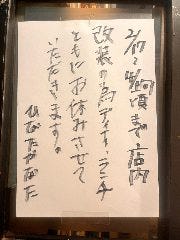 2/17〜 旬頃まで 店内
改装の為ディナー、ランチ
ともにお休みさせて
いただきます。